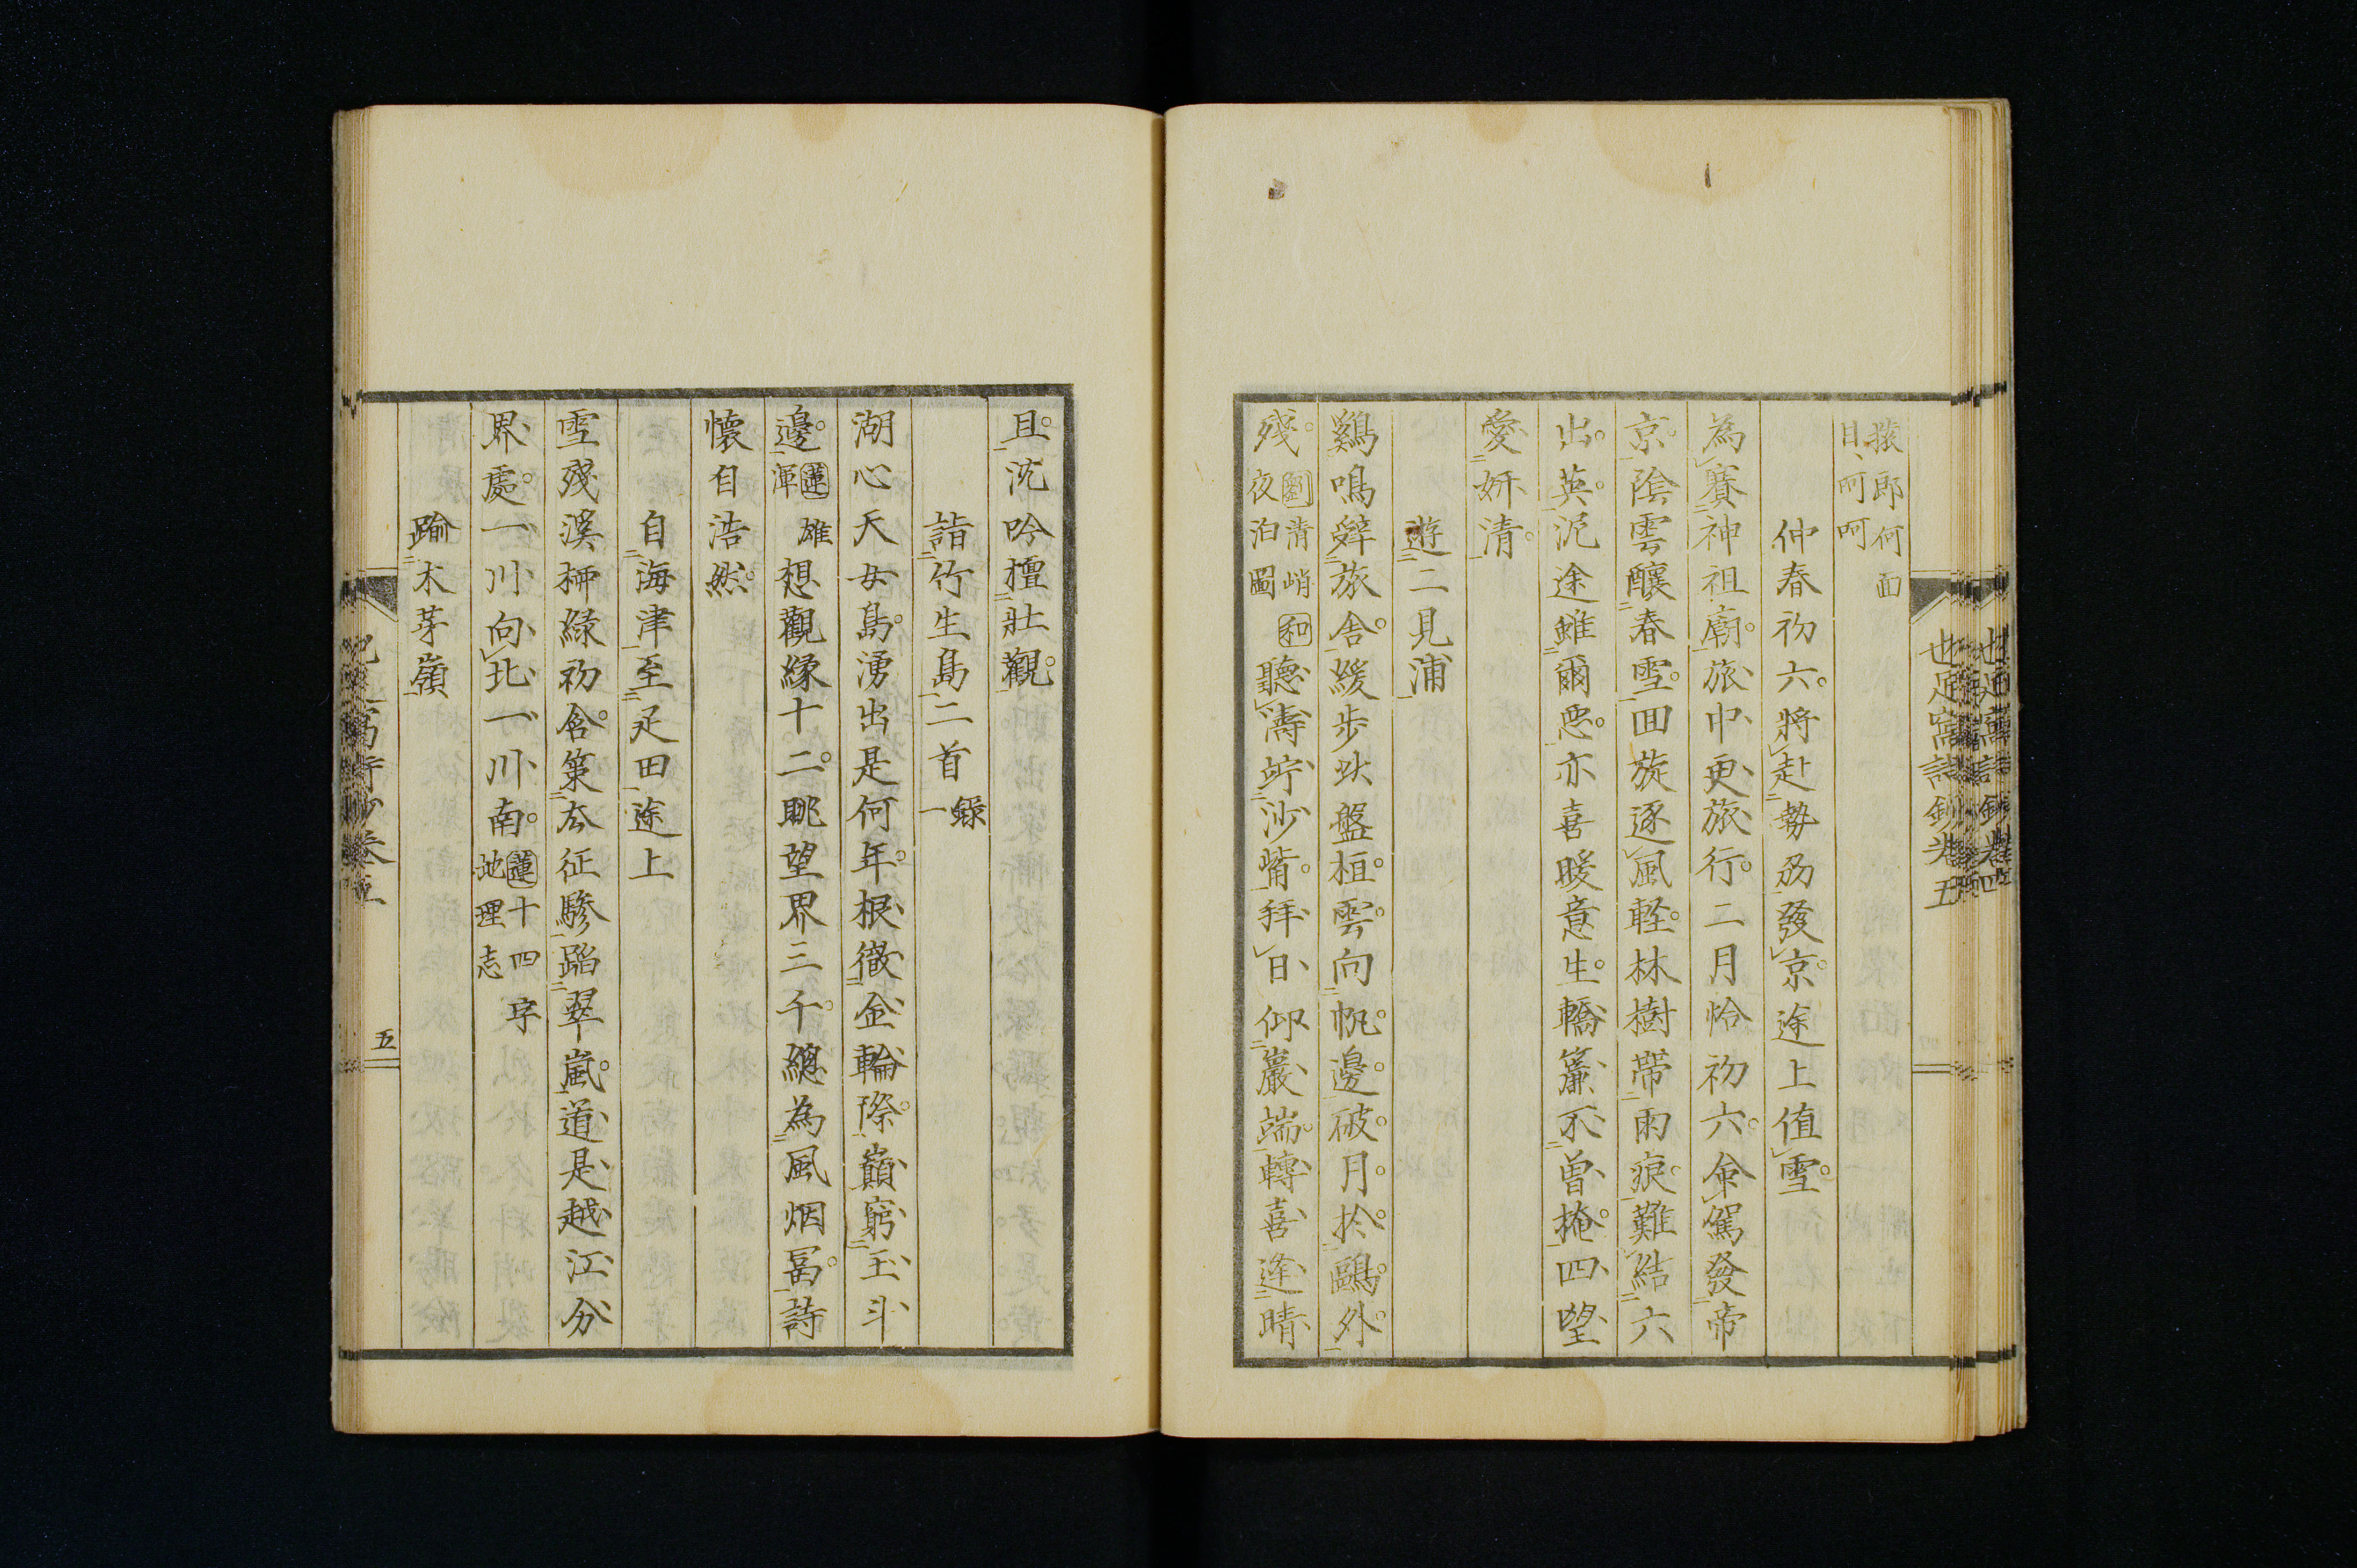 也足窩詩鈔卷五
挨郎何面
日、呵呵
仲春初六。將赴勢州發京途上值雪。
為賽神祖廟。旅中更旅行。二月恰初六。命駕發帝
京。陰雲釀春雪。回旋逐風輕。林樹帶雨痕。難結六
出英。泥途雖爾惡。亦喜暖意生。轎簾不曾掩。四望
愛妍清。
遊二見浦
鷄鳴辭旅舍。緩步欲盤桓。雲向帆邊破。月於鷗外
殘。劉清峭
夜泊圖
和聽濤竚沙觜。拜日仰巖端。轉喜逢晴
旦。沈吟擅壯觀。
詣竹生島二首錄一
湖心天女島。湧出是何年。根徹金輪際。巔窮玉斗
邊。蓮雄
渾
想觀緣十二。眺望界三千。總為風烟冨。詩
懷自浩然。
自海津至疋田途上
雪殘溪柳綠初含。策杏征驂踏翠嵐。道是越江分
界處。一川向北一川南。蓮十四字
地理志
踰木芽嶺
五